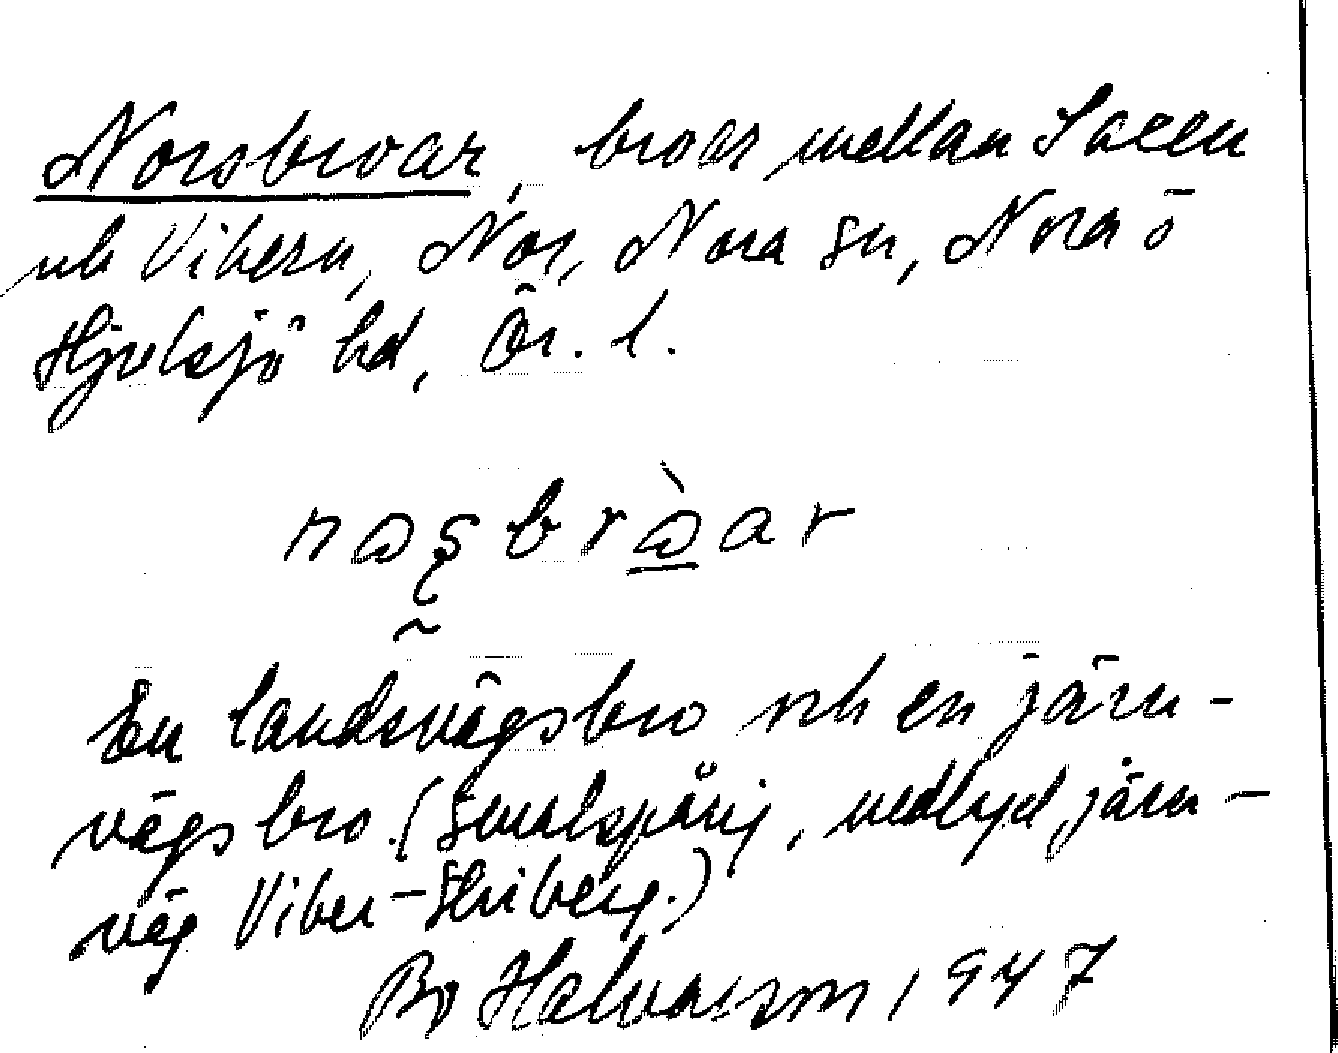 Norsbroar, broar mellan Såeln
och Vibern, Nor, Nora sn, Nora o
Hjulsjö hd, Ör. l.
naʂbràar
En landsvägsbro och en järn-
vägsbro (smalspårig, nedlagd järn-
väg Viker-Striberg.)
Bo Halvarsson, 1947